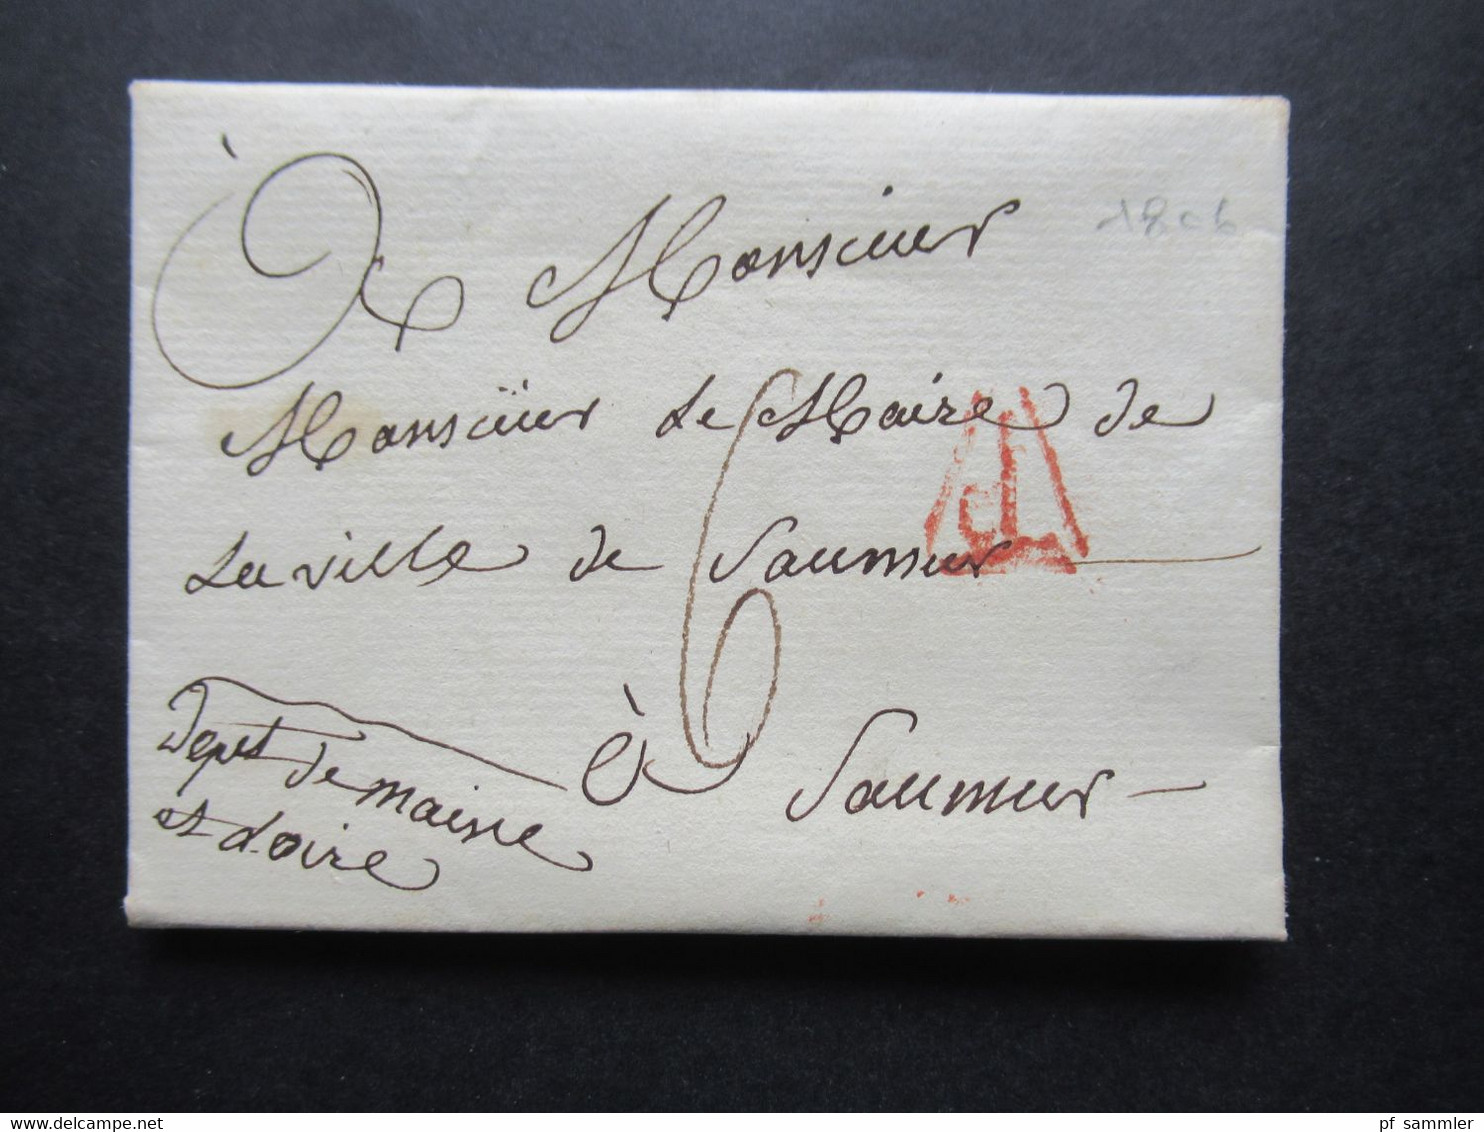 À Monsieur
1806
Monsieur Le Maire de
La ville de Saumur
6
P
à Saumur
Dept de maine
et Loire
delcampe.net
pf_sammler